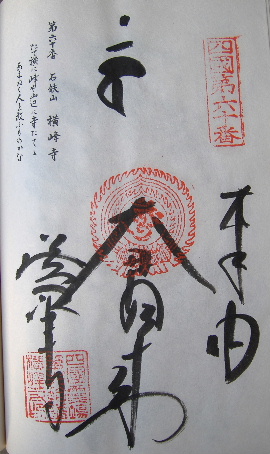 四國第六十番
奉納
大日如来
横峰寺
第六十番 石鈇山 横峰寺
たて横に峰や山辺に寺たてて
あまねく人を救ふものかな